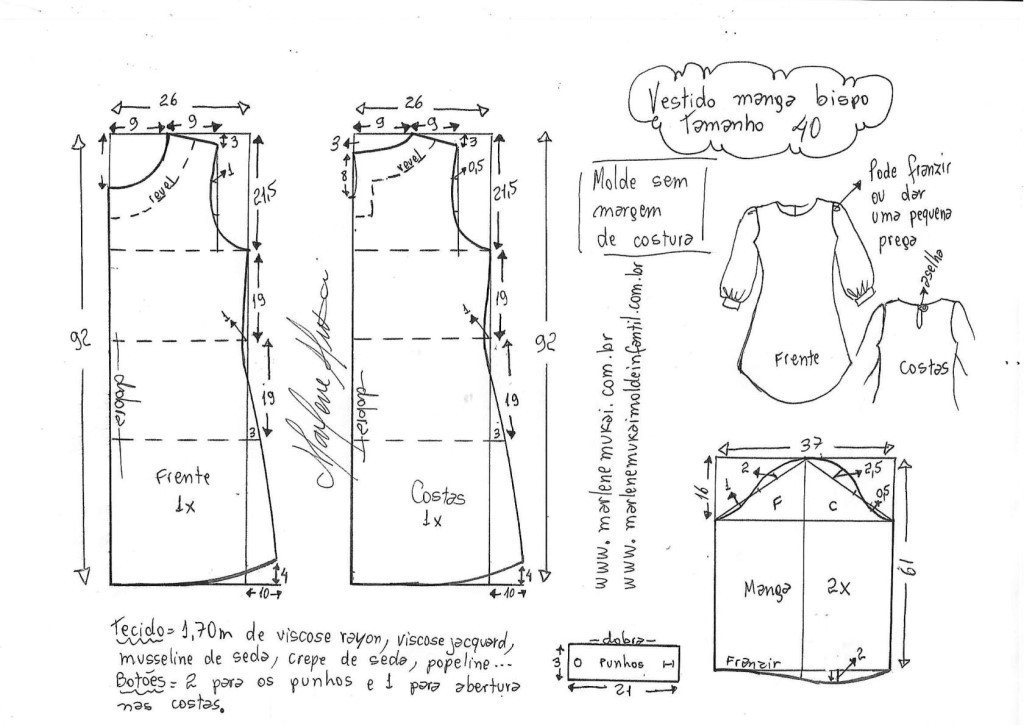 Vestido manga bispo
e Tamanho 40
Molde sem
margem
de costura
Pode franzir
ou dar
uma pequena
prega
aselha
Frente
costas
26
9
9
3
1
revel
21,5
19
1
92
dobra
19
3
Frente
1x
4
10
26
9
9
3
3
8
0,5
revel
21,5
19
1
92
dobra
19
3
Costas
1x
4
10
Marlene Mukai
www.marlenemukai.com.br
www.marlenemukaimoldeinfantil.com.br
37
16
2
2,5
1
0,5
F
C
61
Manga 2x
Franzir
2
dobra
3
Punhos
21
Tecido = 1,70m de viscose rayon, viscose jacquard,
musseline de seda, crepe de seda, popeline...
Botões = 2 para os punhos e 1 para abertura
nas costas.